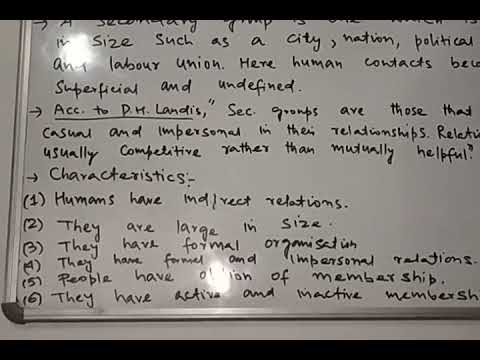 → A secondary group is one which is
in size such as a city, nation, political
and labour union. Here human contacts
superficial and undefined.
→ Acc. to P.H. Landis, "Sec. groups are those that
casual and impersonal in their relationships.
usually competitive rather than mutually helpful."
→ Characteristics:-
(1) Humans have indirect relations.
(2) They are large in size.
(3) They have formal organisation
(4) They have formal and impersonal relations.
(5) People have option of membership.
(6) They have active and inactive